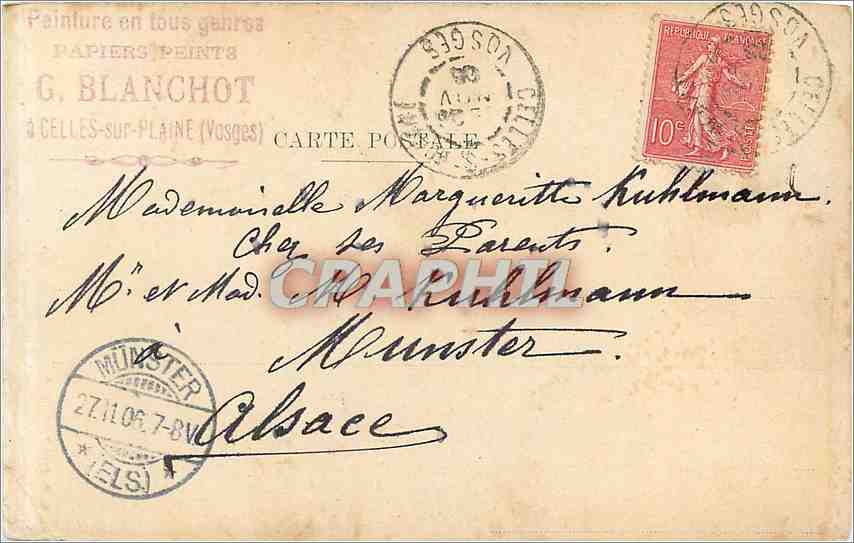 Peinture en tous genres
PAPIERS PEINTS
G. BLANCHOT
à CELLES-sur-PLAINE (Vosges)
CARTE POSTALE
CELLES-S
VOSGES
06
REPUBLIQUE FRANÇAISE
10c
POSTES
CELLES
VOSGES
Mademoiselle Margueritte Kuhlmann.
Chez ses Parents.
Mr et Mad. M Kuhlmann
à Munster.
Alsace
CRAPHIL
MÜNSTER
27.11.06.7-8V
* (ELS.) *